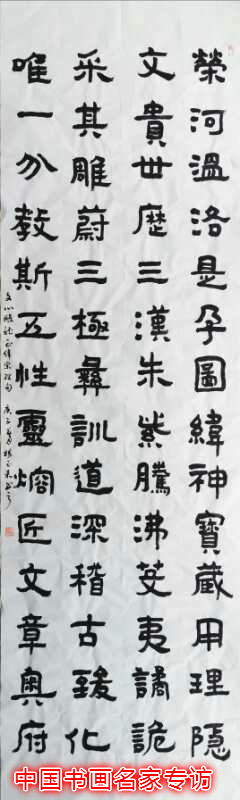 榮河溫洛是孕圖緯神寶藏用理隱
文貴世歷三漢朱紫騰沸芟夷譎詭
采其雕蔚三極彝訓道深稽古致化
唯一分教斯五性靈熔匠文章奧府
文心雕龍正緯宗經句 庚子夏
中国书画名家专访